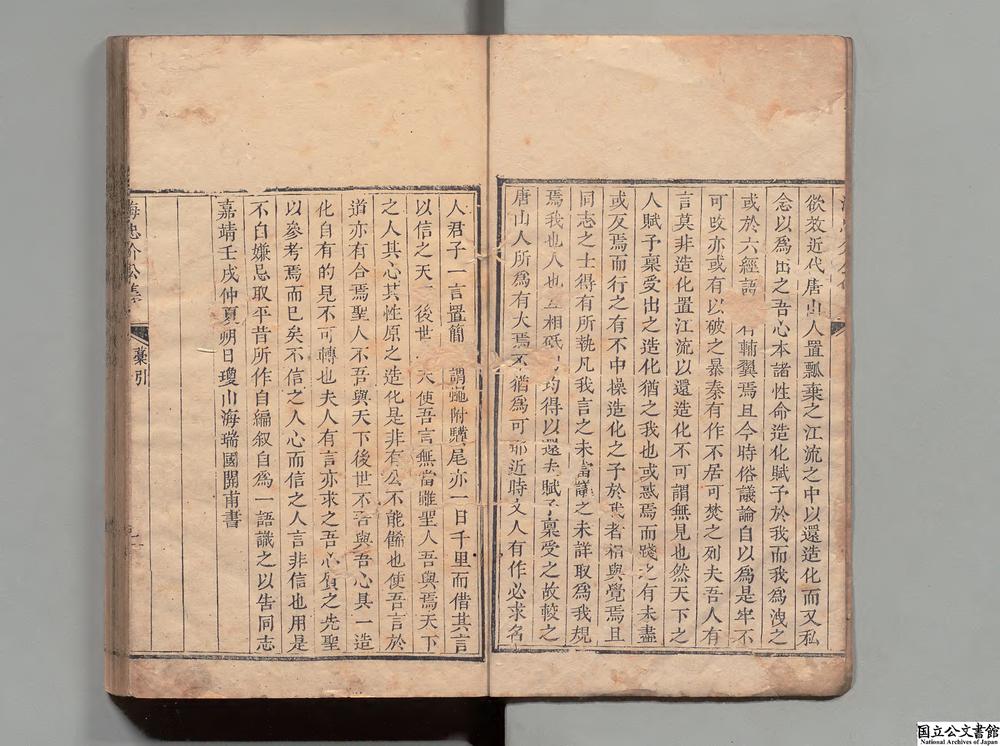 欲效近代唐山人置瓢棄之江流之中以還造化而又私
念以爲出之吾心本諸性命造化賦予於我而我爲洩之
或於六經語有輔翼焉且今時俗議論自以爲是牢不
可改亦或有以破之暴秦有作不居可焚之列夫吾人有
言莫非造化置江流以還造化不可謂無見也然天下之
人賦予稟受出之造化猶之我也或惑焉而踐之有未盡
或反焉而行之有不中操造化之子於我者相與覺焉且
同志之士得有所執凡我言之未當議之未詳取爲我規
焉我也人也互相砥均得以還夫賦予稟受之故較之
唐山人所爲有大焉不猶爲可耶近時文人有作必求名
人君子一言置簡謂蠅附驥尾亦一日千里而借其言
以信之天後世天使吾言無當雖聖人吾與焉天下
之人其心其性原之造化是非有公不能僞也使吾言於
道亦有合焉聖人不吾與天下後世不吾與吾心具一造
化自有的見不可轉也夫人有言亦求之吾心質之先聖
以參考焉而已矣不信之人心而信之人言非信也用是
不白嫌忌取平昔所作自編叙自爲一語識之以告同志
嘉靖壬戌仲夏朔日瓊山海瑞國開甫書
海忠介公集
藁引
国立公文書館
National Archives of Japan